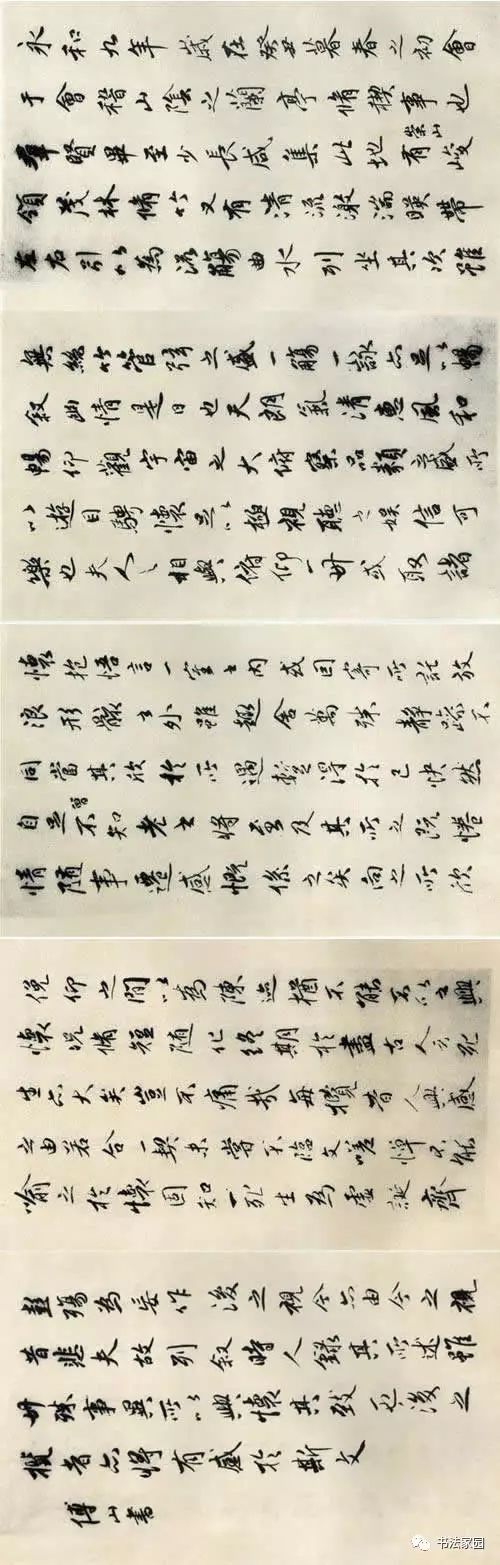 永和九年歲在癸丑暮春之初會
于會稽山陰之蘭亭脩稧事也
羣賢畢至少長咸集此地有崇山峻
領茂林脩竹又有清流激湍暎帶
左右引以為流觴曲水列坐其次雖
無絲竹管弦之盛一觴一詠亦足以暢
叙幽情是日也天朗氣清惠風和
暢仰觀宇宙之大俯察品類之盛所
以遊目騁懷足以極視聽之娛信可
樂也夫人之相與俯仰一世或取諸
懷抱悟言一室之內或因寄所託放
浪形骸之外雖趣舍萬殊靜躁不
同當其欣於所遇蹔得於己快然
自足曾不知老之將至及其所之既惓
情隨事遷感慨係之矣向之所欣
俛仰之間以為陳迹猶不能不以之興
懷況脩短隨化終期於盡古人云死
生亦大矣豈不痛哉每攬昔人興感
之由若合一契未嘗不臨文嗟悼不能
喻之於懷固知一死生為虛誕齊
彭殤為妄作後之視今亦由今之視
昔悲夫故列叙時人錄其所述雖
世殊事異所以興懷其致一也後之
攬者亦將有感於斯文
傅山書
书法家园